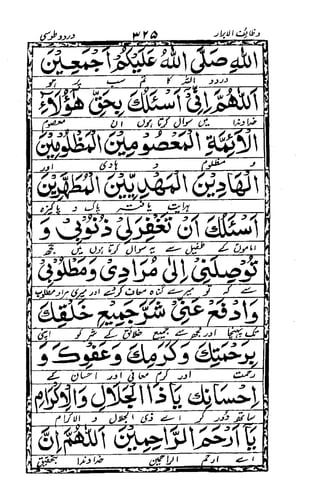 وظائف الابرار ۳۲۵ درود طوسی
اللهِ صَلَى اللهُ عَلَيْكُمْ اَجْمَعِيْنَ
درود اللہ کا تم سب پر ہو
اَللّٰهُمَّ اِنِّیْ اَسْئَلُكَ بِحَقِّ هٰؤُلَاءِ
خداوندا میں سوال کرتا ہوں ان معصوم
الْاَئِمَّةِ الْمَعْصُومِيْنَ الْمَظْلُوْمِيْنَ
و مظلوم و ہادی اور
الْهَادِيْنَ الْمَهْدِيِّيْنَ الْمُطَهَّرِيْنَ
ہدایت یافتہ پاک و پاکیزہ
اَسْئَلُكَ اَنْ تَغْفِرَلِیْ ذُنُوْبِیْ وَ
اماموں کے طفیل سے یہ سوال کرتا ہوں میں تجھ
تُوْصِلَنِیْ اِلٰى مُرَادِیْ وَمَطْلُوْبِیْ
سے کہ تو میرے گناہ معاف کردے اور میری مراد و مطلوب
وَادْفَعْ عَنِّیْ شَرَّ جَمِيْعِ خَلْقِكَ
تک پہنچا اور مجھ سے جمیع خلائق کے شر کو اپنی
بِرَحْمَتِكَ وَكَرَمِكَ وَعَفْوِكَ وَ
رحمت اور کرم معافی اور احسان کے
اِحْسَانِكَ يَا ذَا الْجَلَالِ وَالْاِكْرَامِ
ساتھ دور کر اے ذی الجلال و الاکرام
يَا اَرْحَمَ الرَّاحِمِيْنَ اَللّٰهُمَّ اِنَّ
اے ارحم الراحمین خداوندا بتحقیق